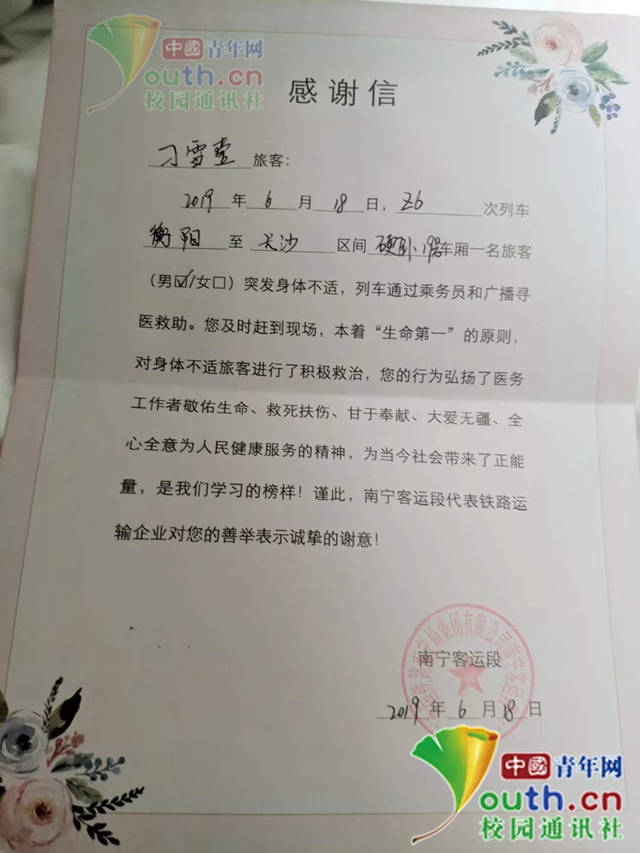 中國青年网
Youth.cn
校园通讯社
感谢信
刁雪莹 旅客：
2019 年 6 月 18 日，Z6 次列车
衡阳 至 长沙 区间 硬卧 19号车厢一名旅客
（男☑/女□）突发身体不适，列车通过乘务员和广播寻
医救助。您及时赶到现场，本着“生命第一”的原则，
对身体不适旅客进行了积极救治，您的行为弘扬了医务
工作者敬佑生命、救死扶伤、甘于奉献、大爱无疆、全
心全意为人民健康服务的精神，为当今社会带来了正能
量，是我们学习的榜样！谨此，南宁客运段代表铁路运
输企业对您的善举表示诚挚的谢意！
南宁局集团有限公司南宁客运段
南宁客运段
2019 年 6 月 18 日
中國青年网
Youth.cn
校园通讯社